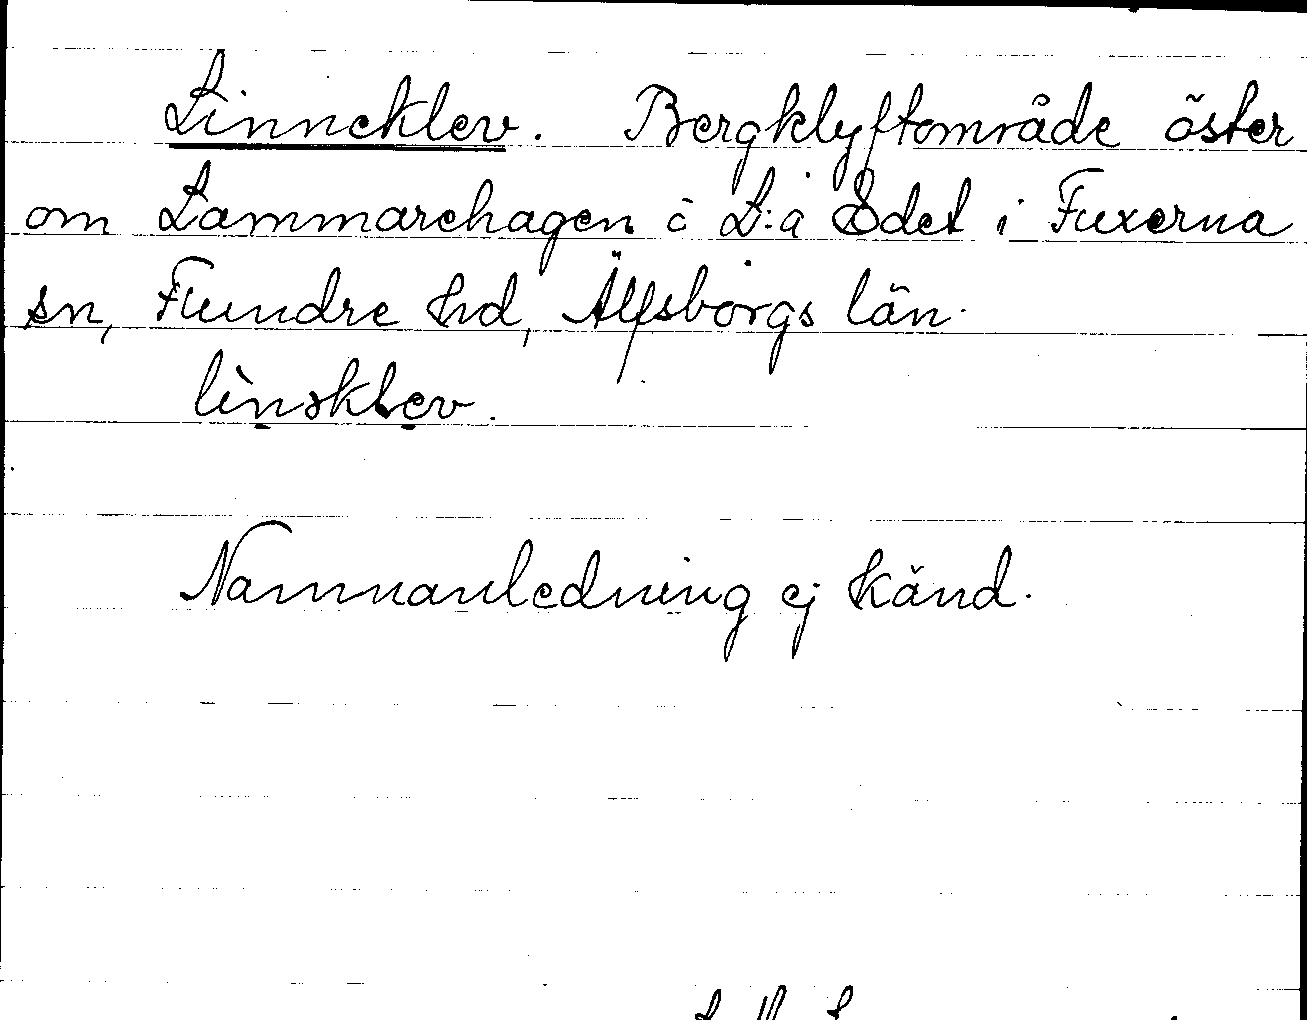 Linneklev. Bergklyftområde öster
om Lammarehagen å L:a Edet i Fuxerna
sn, Flundre hd, Älfsborgs län.
lìnəklev.
Namnanledning ej känd.